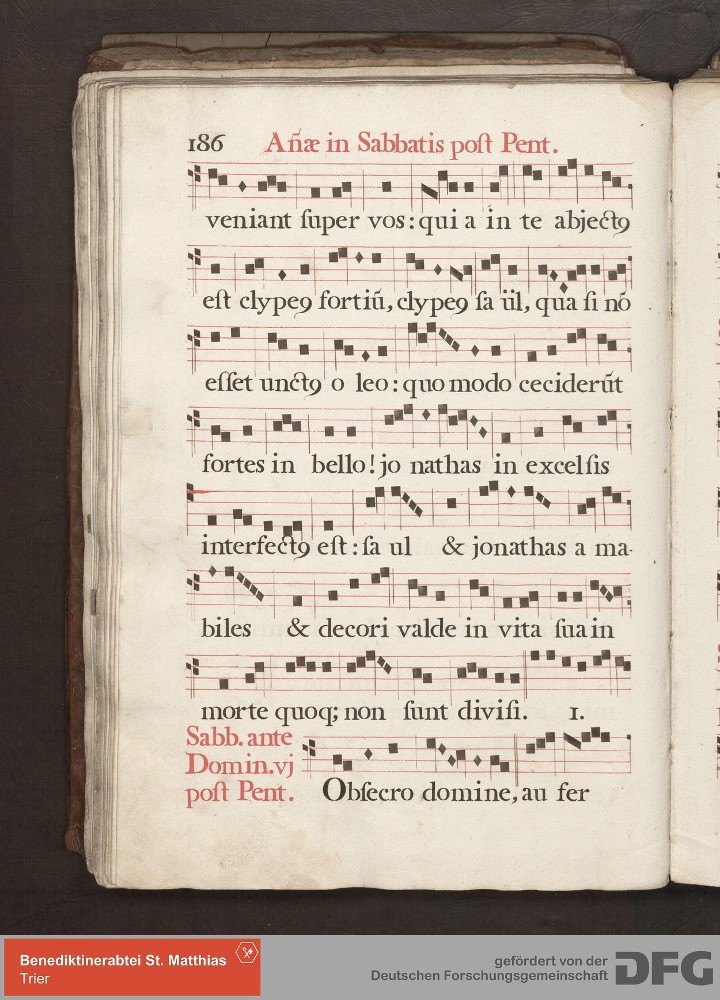 186 Añæ in Sabbatis poſt Pent.
veniant ſuper vos: qui a in te abjectꝯ
eſt clypeꝯ fortiũ, clypeꝯ ſa ül, qua ſi nõ
eſſet unctꝯ o leo: quo modo ceciderũt
fortes in bello! jo nathas in excelſis
interfectꝯ eſt: ſa ul & jonathas a ma-
biles & decori valde in vita ſua in
morte quoq; non ſunt diviſi. 1.
Sabb. ante
Domin. vj
poſt Pent. Obſecro domine, au fer
Benediktinerabtei St. Matthias
Trier
gefördert von der
Deutschen Forschungsgemeinschaft DFG